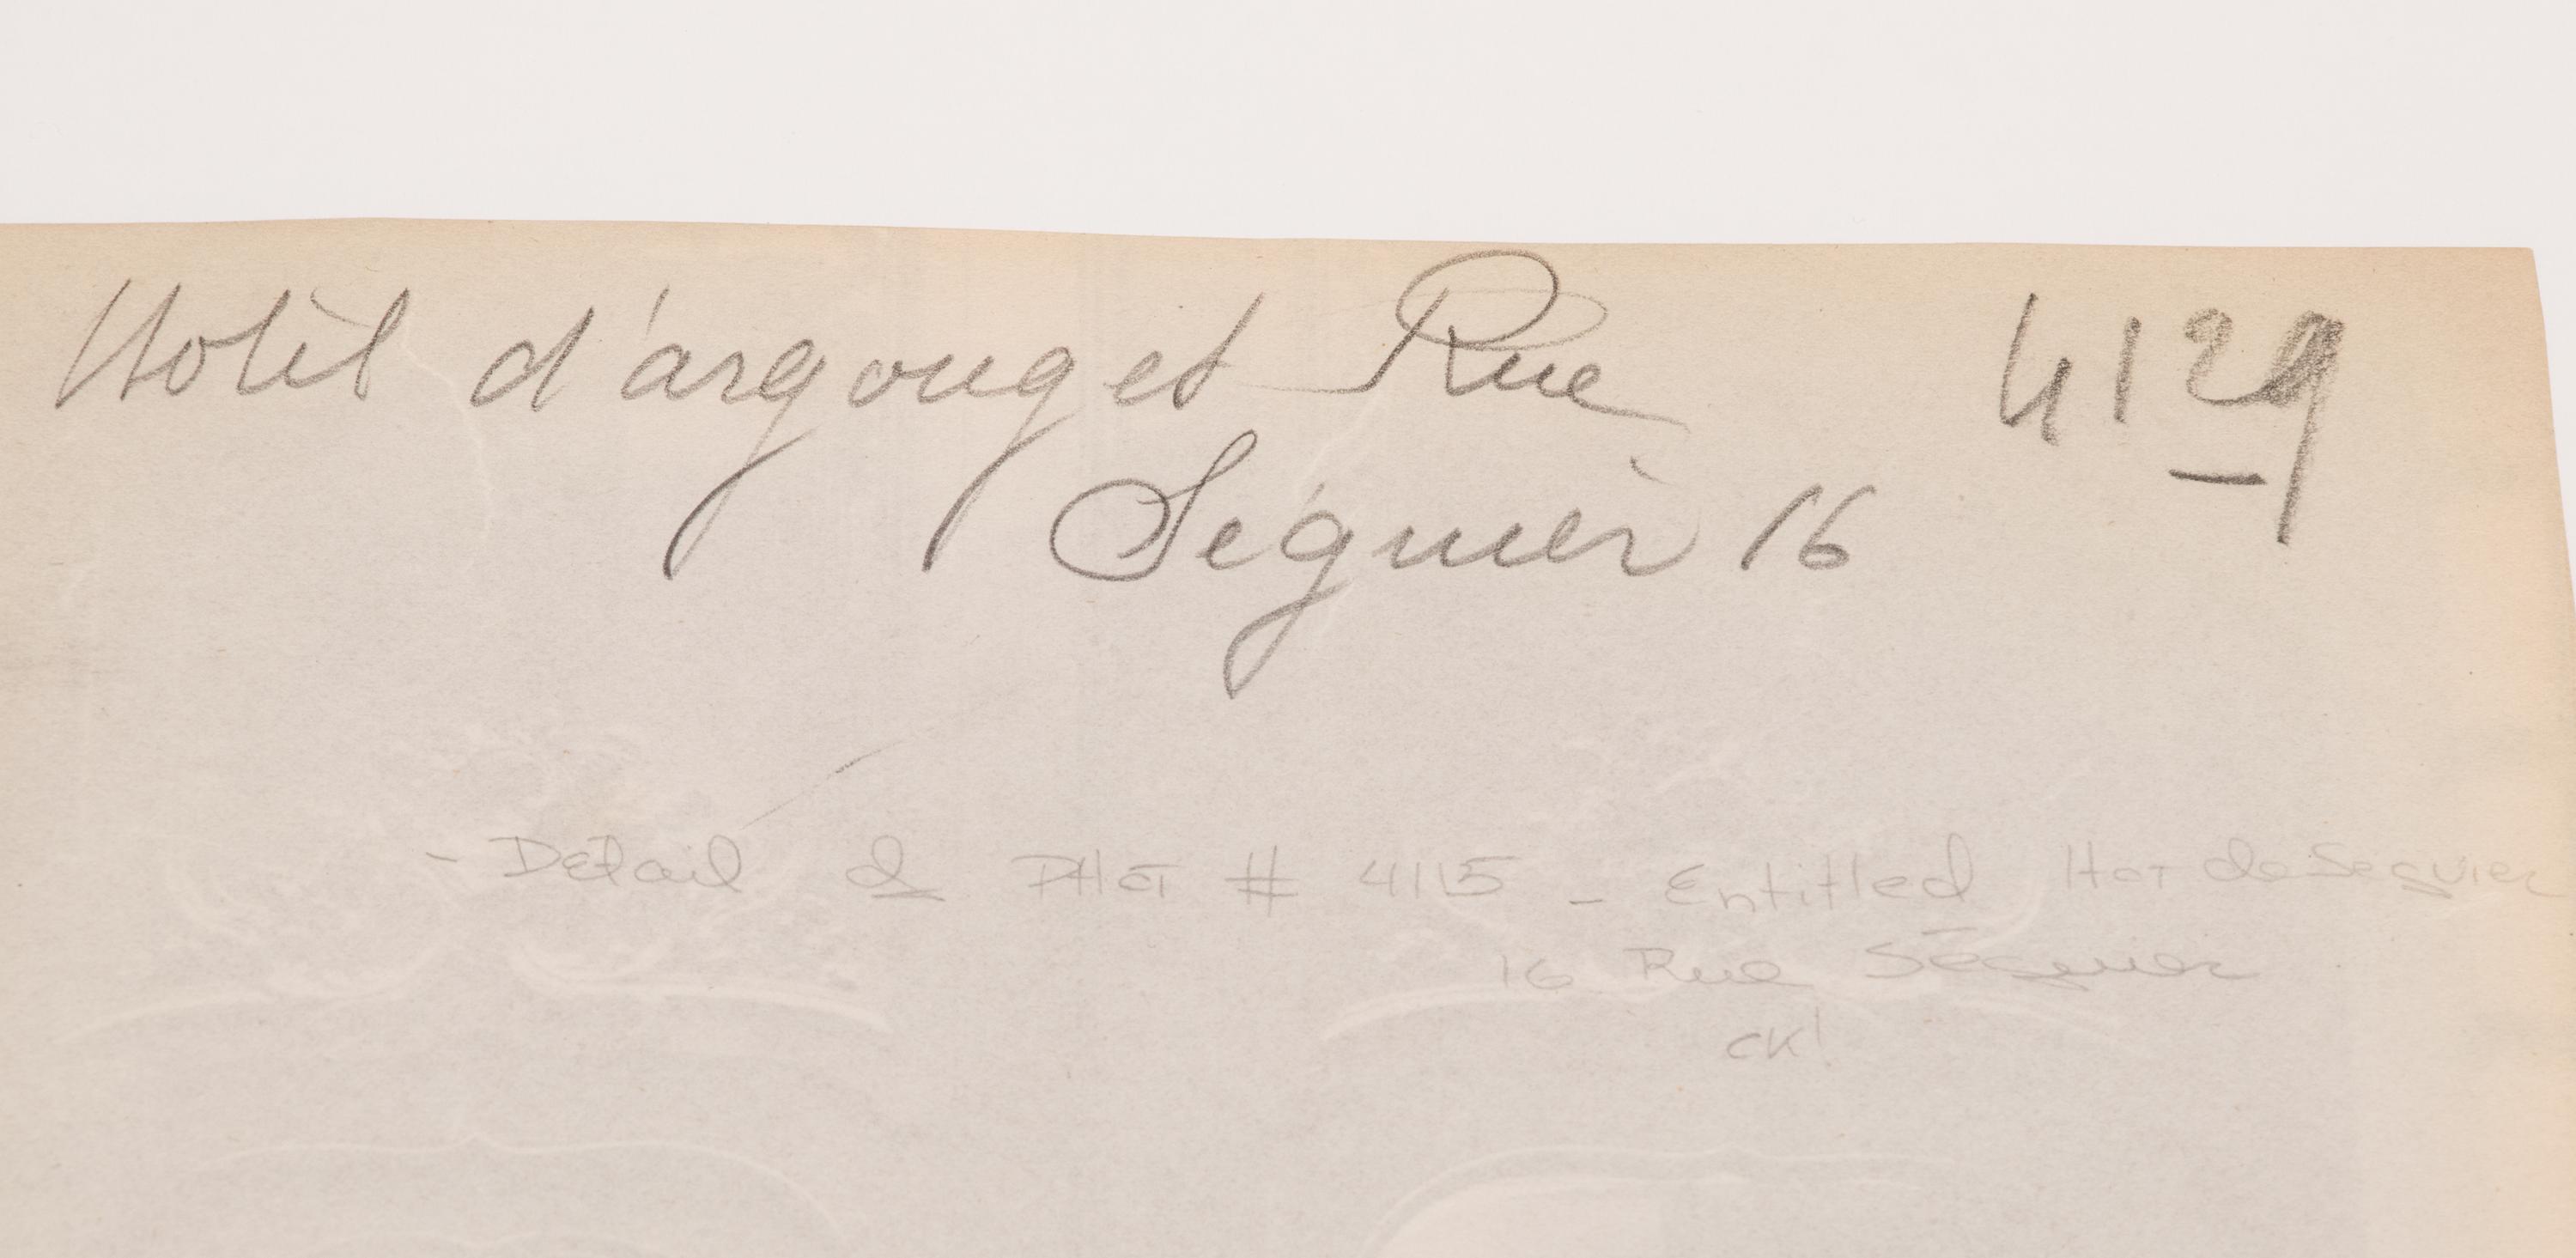 Hotêl d'argouget Rue 4129
Séguier 16
- Detail of PHOT # 4115 - Entitled Hot de Seguier
16 Rue Séguier
CK!